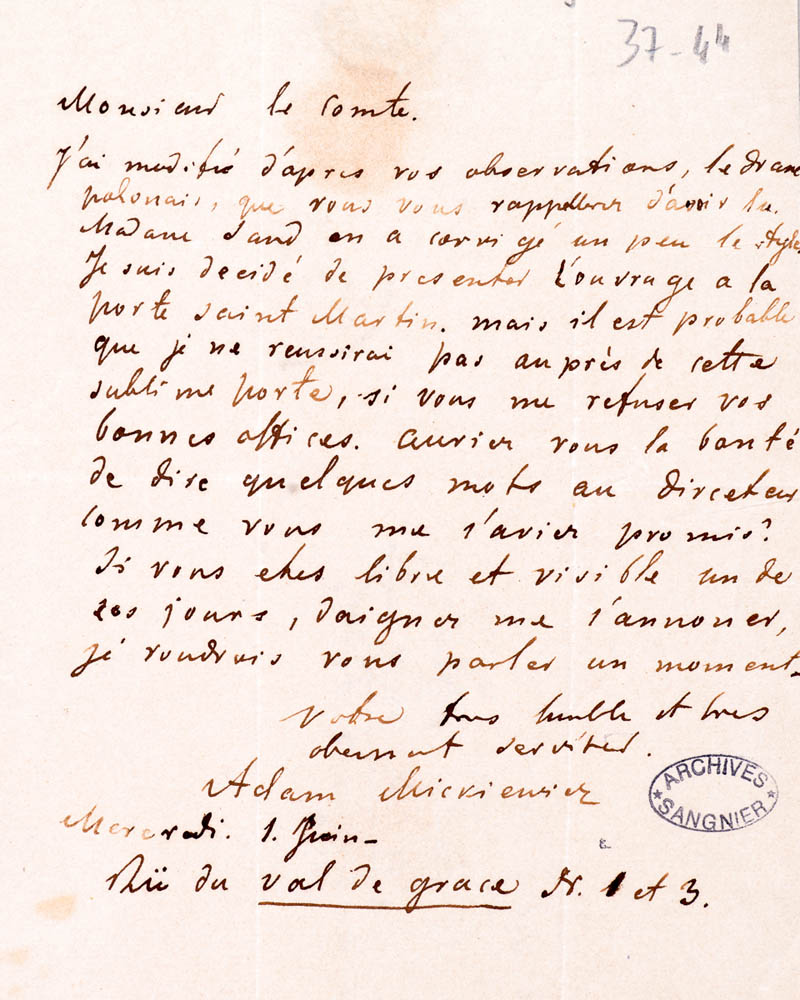 37-44
Monsieur le comte.
J'ai modifié d'apres vos observations, le drame
polonais, que vous vous rappellerez d'avoir lu.
Madame Sand en a corrigé un peu le style.
Je suis decidé de presenter l'ouvrage a la
porte saint Martin. mais il est probable
que je ne reussirai pas auprés de cette
sublime porte, si vous me refusez vos
bonnes offices. auriez vous la bonté
de dire quelques mots au directeur
comme vous me l'aviez promis?
Si vous etes libre et visible un de
ces jours, daignez me l'annoncer,
je voudrais vous parler un moment.
Votre tres humble et tres
obeissant serviteur.
Adam Mickiewicz
ARCHIVES
SANGNIER
Mercredi. 1. Juin-
Rüe du val de grace N. 1 et 3.